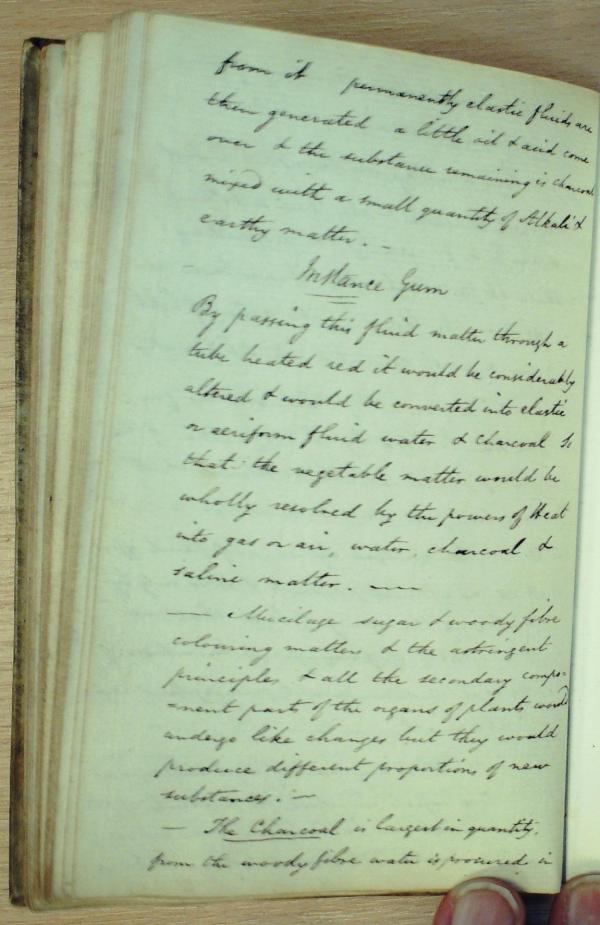 from it permanently elastic fluids are
then generated a little oil & acid come
over & the substance remaining is charcoal
mixed with a small quantity of Alkali &
earthy matter. -
Instance Gum
By passing this fluid matter through a
tube heated red it would be considerably
altered & would be converted into elastic
or aeriform fluid water & charcoal So
that the vegetable matter would be
wholly resolved by the powers of Heat
into gas or air, water, charcoal &
saline matter. —
— Mucilage sugar & woody fibre
colouring matters & the astringent
principles & all the secondary compo=
=nent parts of the organs of plants would
undergo like changes but they would
produce different proportions of new
substances. —
— The Charcoal is largest in quantity,
from the woody fibre water is procured in